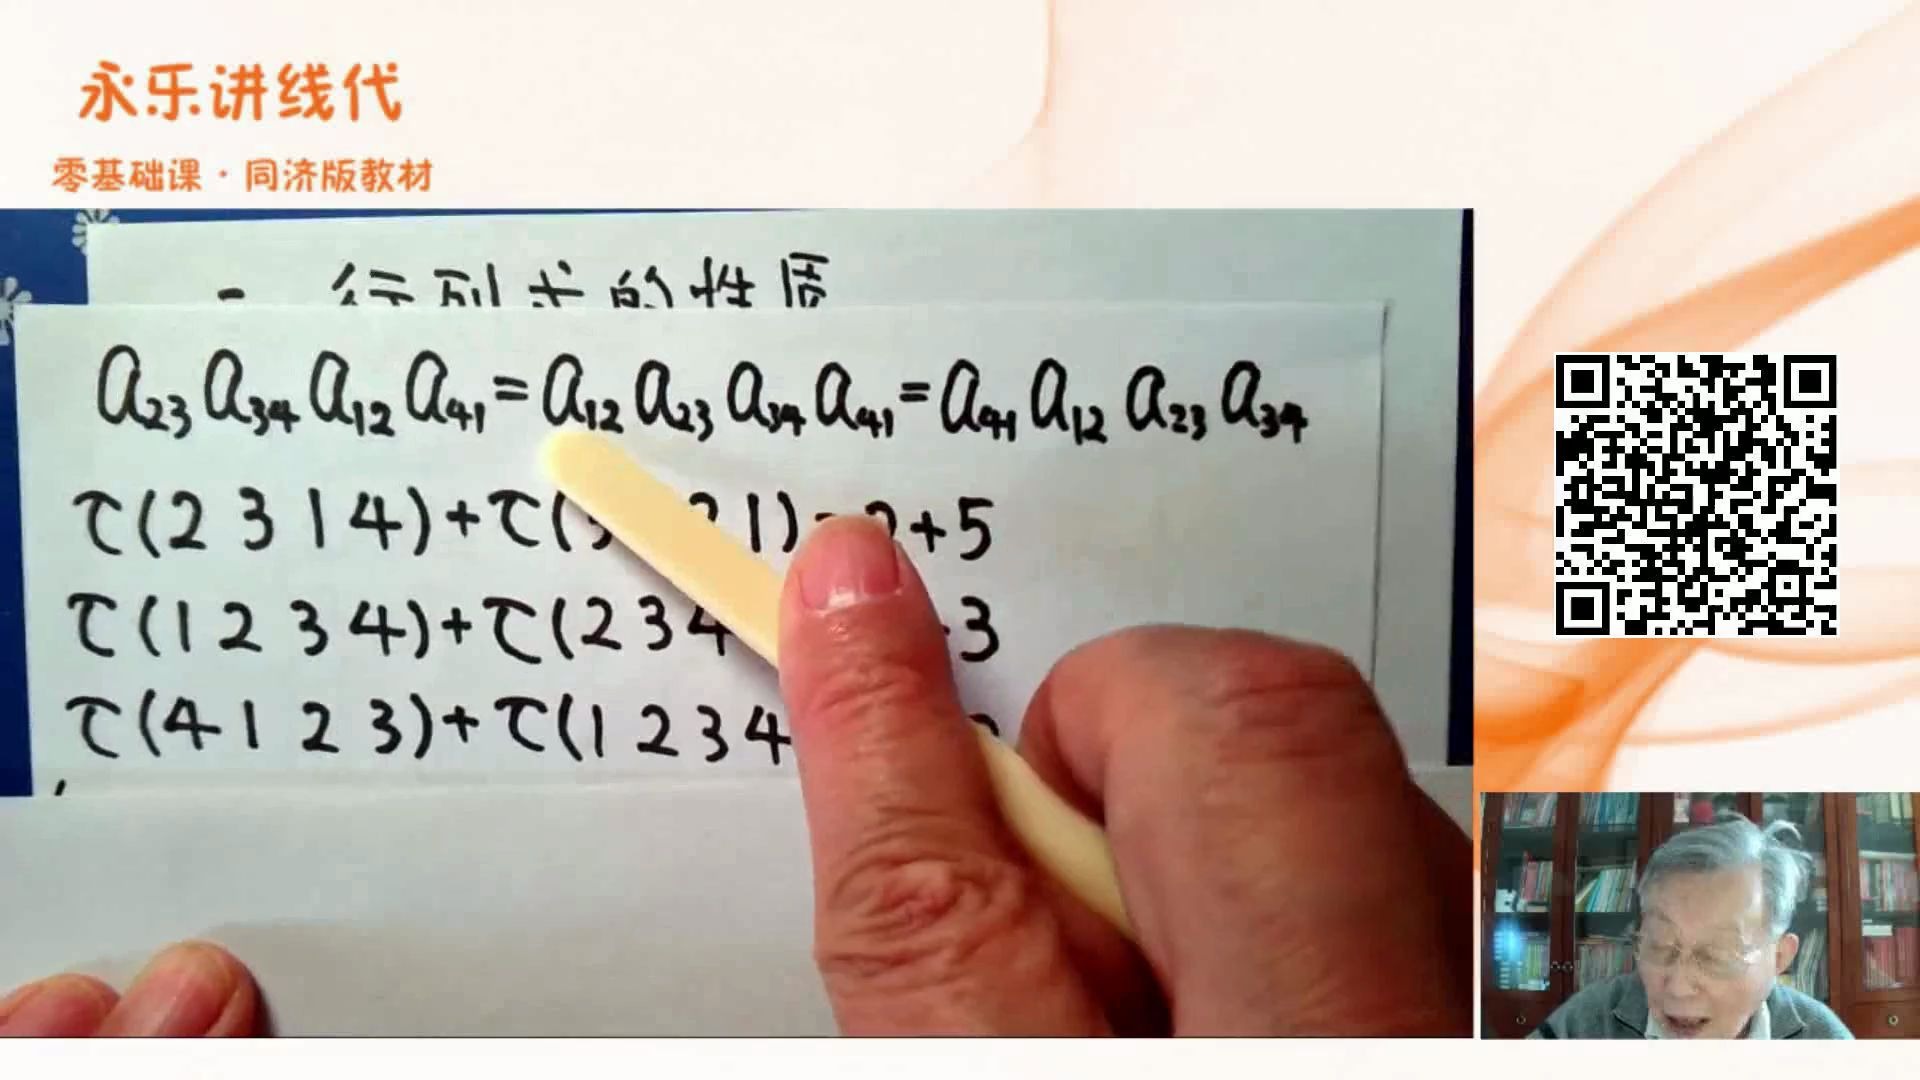 永乐讲线代
零基础课·同济版教材
一 行列式的性质
a₂₃ a₃₄ a₁₂ a₄₁ = a₁₂ a₂₃ a₃₄ a₄₁ = a₄₁ a₁₂ a₂₃ a₃₄
τ(2 3 1 4)+τ( 1) +5
τ(1 2 3 4)+τ(2 3 4 3
τ(4 1 2 3)+τ(1 2 3 4